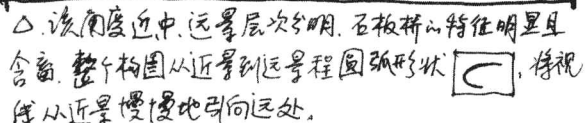 △.该角度近中.远景层次分明.石板桥的特征明显且
含蓄.整个构图从近景到远景程圆弧形状 ,将视
线从近景慢慢地引向远处。